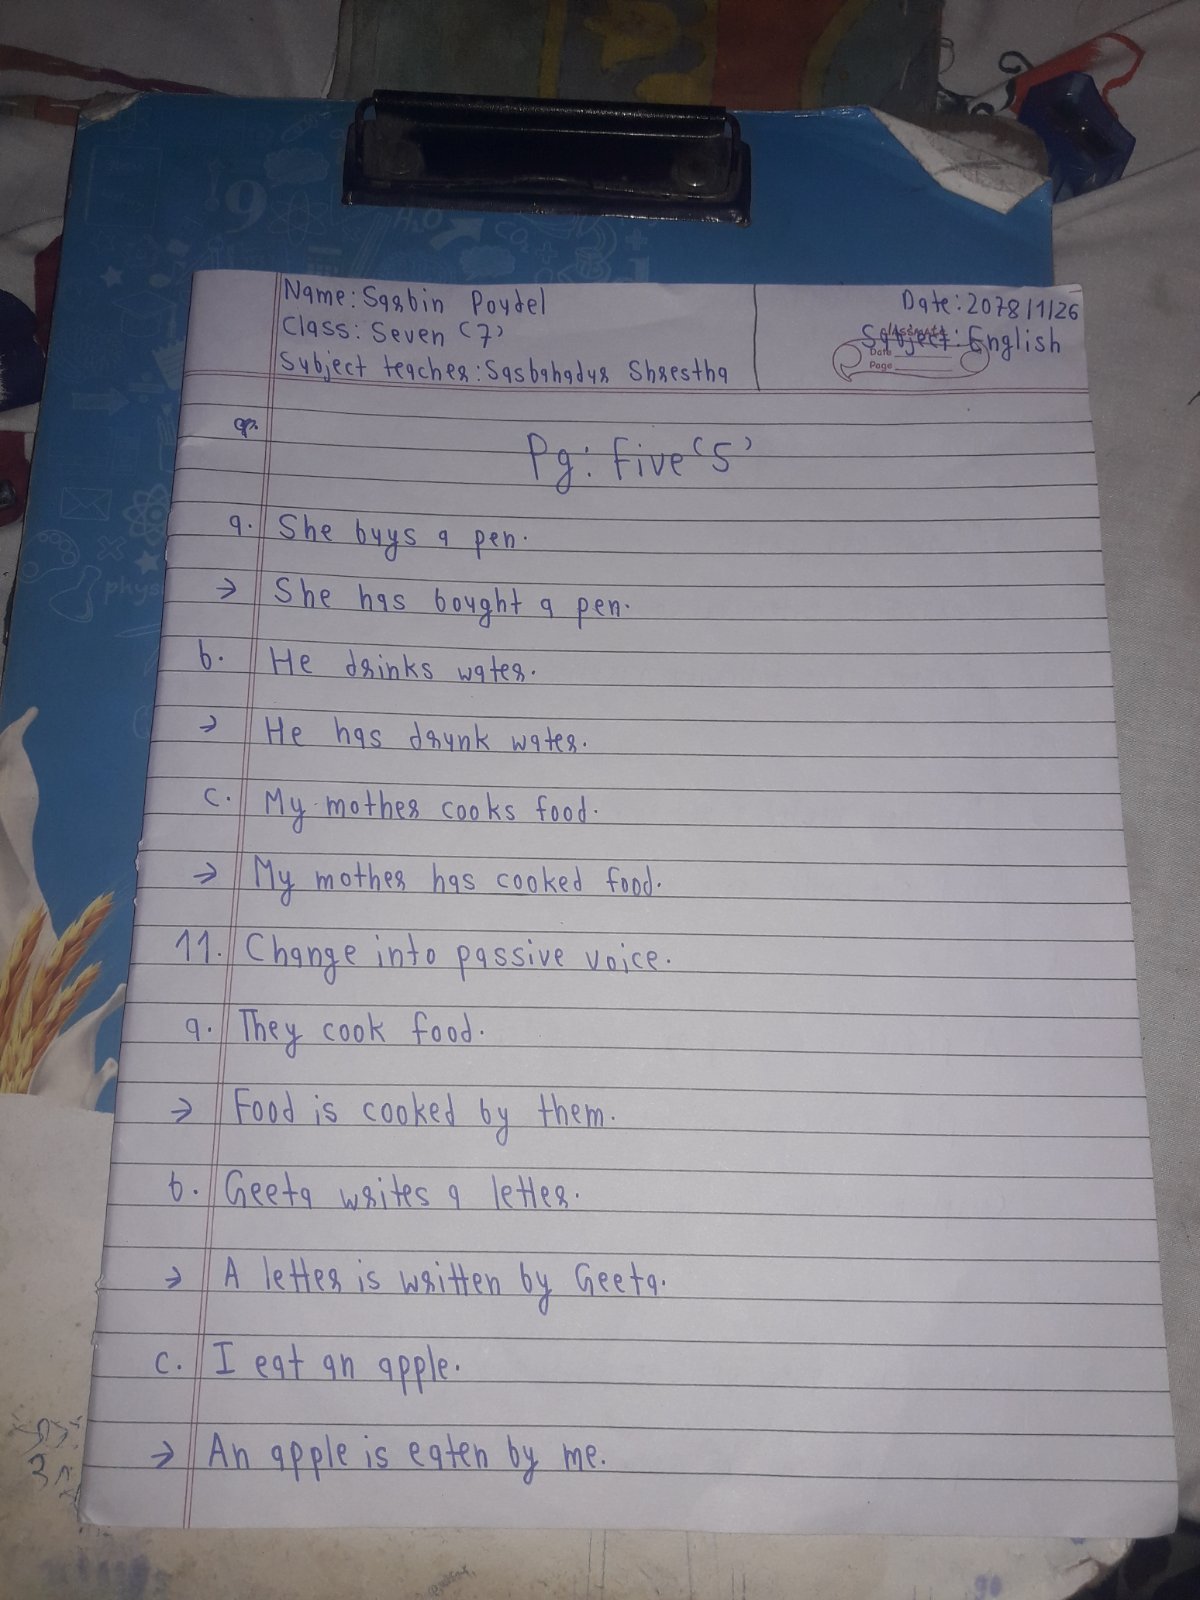 Name: Sarbin Poudel
Class: Seven (7)
Subject teacher: Sarbahadur Shrestha
Date: 2078/1/26
Subject: English
classmate
Date
Page
Pg: Five '5'
a. She buys a pen.
→ She has bought a pen.
b. He drinks water.
→ He has drunk water.
c. My mother cooks food.
→ My mother has cooked food.
11. Change into passive voice.
a. They cook food.
→ Food is cooked by them.
b. Geeta writes a letter.
→ A letter is written by Geeta.
c. I eat an apple.
→ An apple is eaten by me.
9
H₂O
CO₂
phys